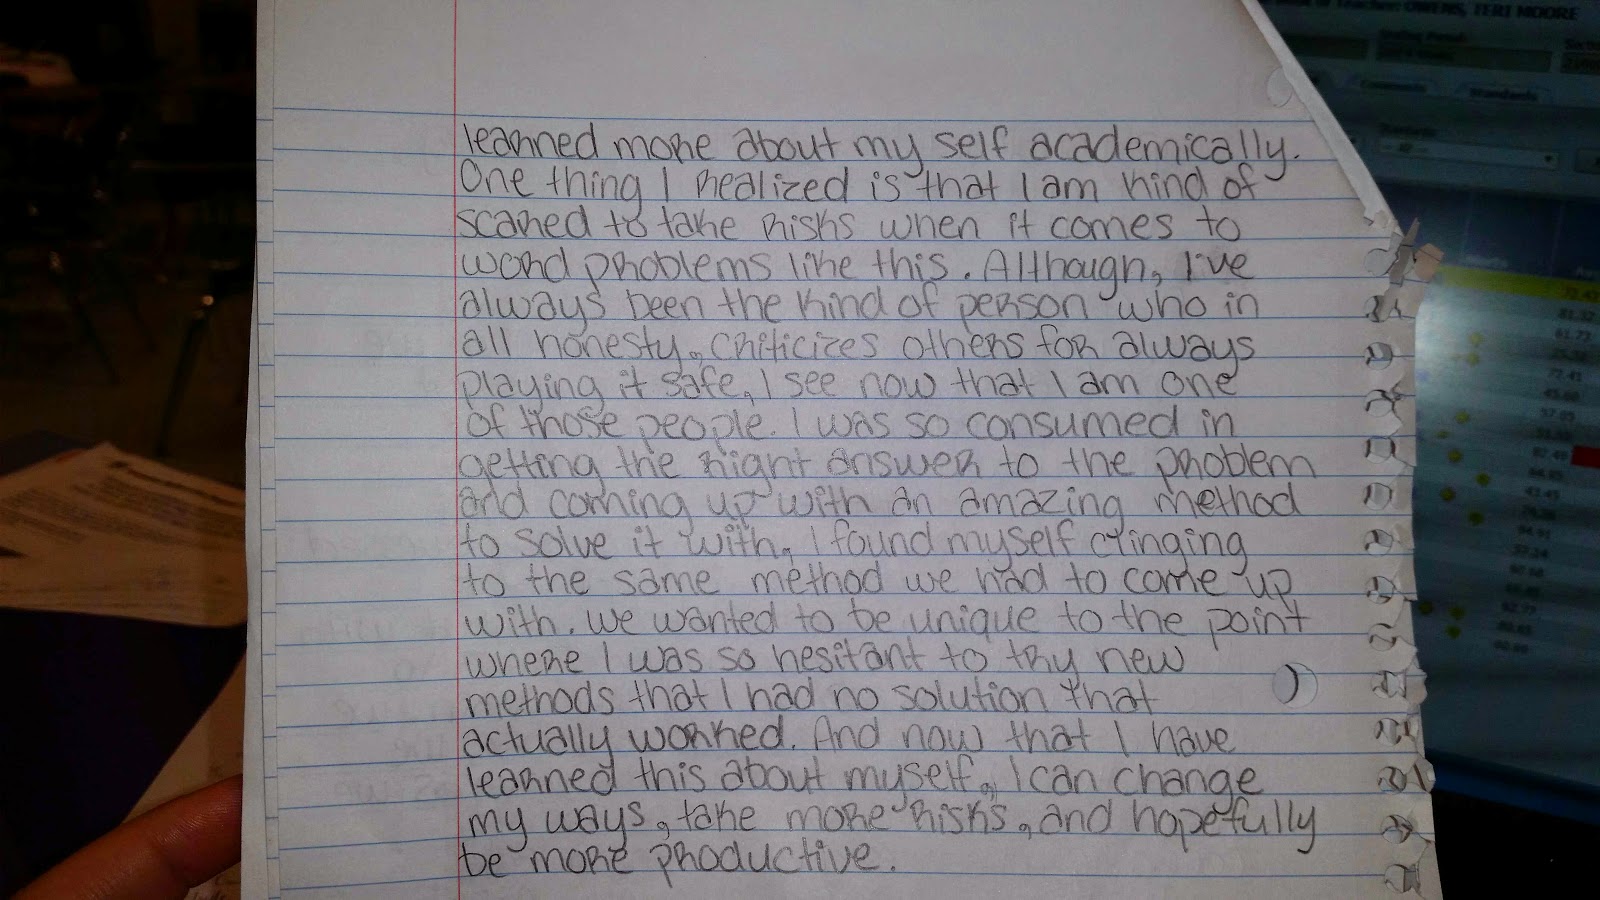 learned more about my self academically.
One thing I realized is that I am kind of
scared to take risks when it comes to
word problems like this. Although, I've
always been the kind of person who in
all honesty, criticizes others for always
playing it safe, I see now that I am one
of those people. I was so consumed in
getting the right answer to the problem
and coming up with an amazing method
to solve it with, I found myself clinging
to the same method we had to come up
with. We wanted to be unique to the point
where I was so hesitant to try new
methods that I had no solution that
actually worked. And now that I have
learned this about myself, I can change
my ways, take more risks, and hopefully
be more productive.
Teacher: OWENS, TERI MOORE
Comments
Standards